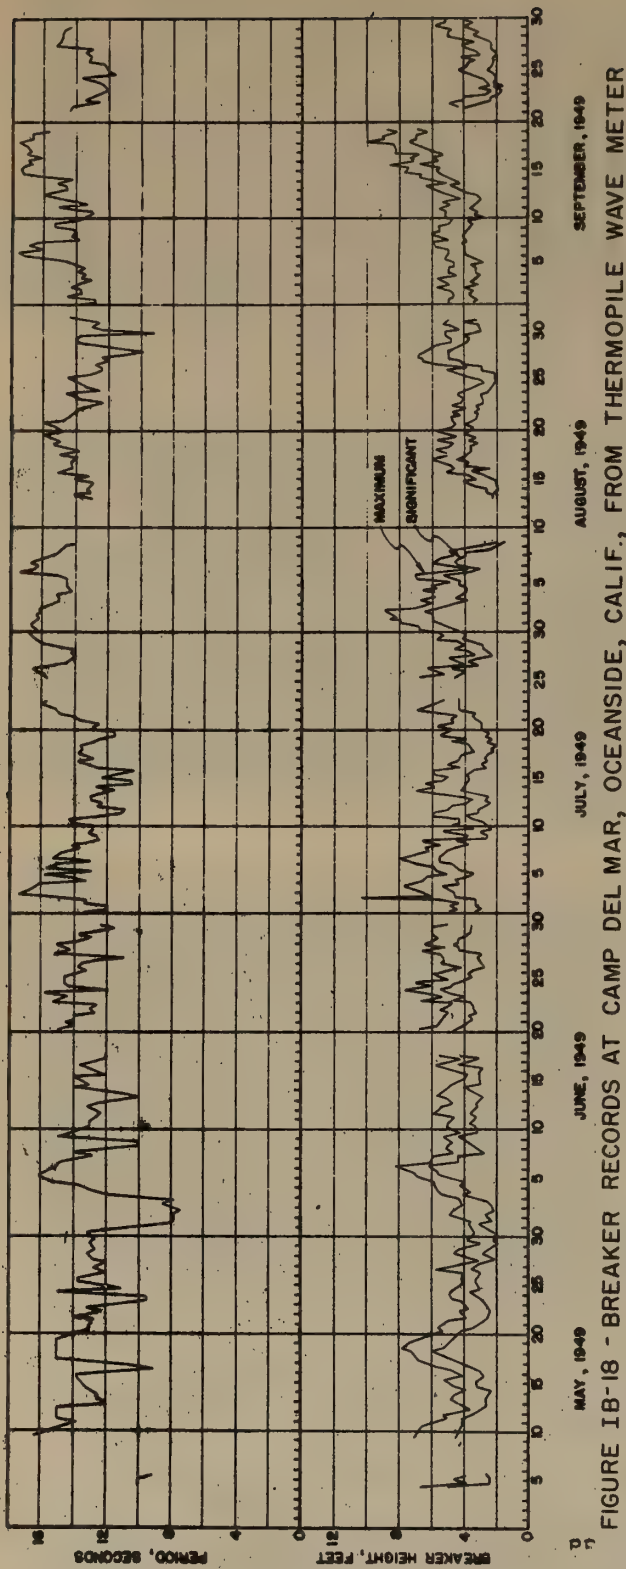 16 12 8 0
PERIOD, SECONDS
12 8 4 0
BREAKER HEIGHT, FEET
MAXIMUM
SIGNIFICANT
5 10 15 20 25 30 5 10 15 20 25 30 5 10 15 20 25 30 5 10 15 20 25 30 5 10 15 20 25 30
MAY, 1949 JUNE, 1949 JULY, 1949 AUGUST, 1949 SEPTEMBER, 1949
FIGURE IB-18 - BREAKER RECORDS AT CAMP DEL MAR, OCEANSIDE, CALIF., FROM THERMOPILE WAVE METER